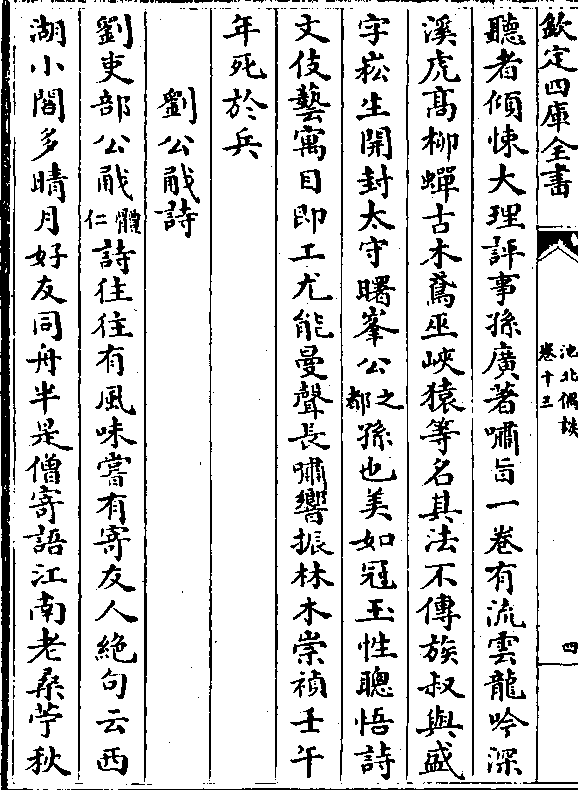 欽定四庫全書
池北偶談
卷十三
四
聽者傾悚大理評事孫廣著嘯旨一卷有流雲龍吟深
溪虎高柳蟬古木鳶巫峽猿等名其法不傳族叔與盛
字崧生開封太守曙峯公之都孫也美如冠玉性聰悟詩
文伎藝寓目即工尤能曼聲長嘯響振林木崇禎壬午
年死於兵
劉公㦷詩
劉吏部公㦷體仁詩往往有風味嘗有寄友人絶句云西
湖小閣多晴月好友同舟半是僧寄語江南老桑苧秋